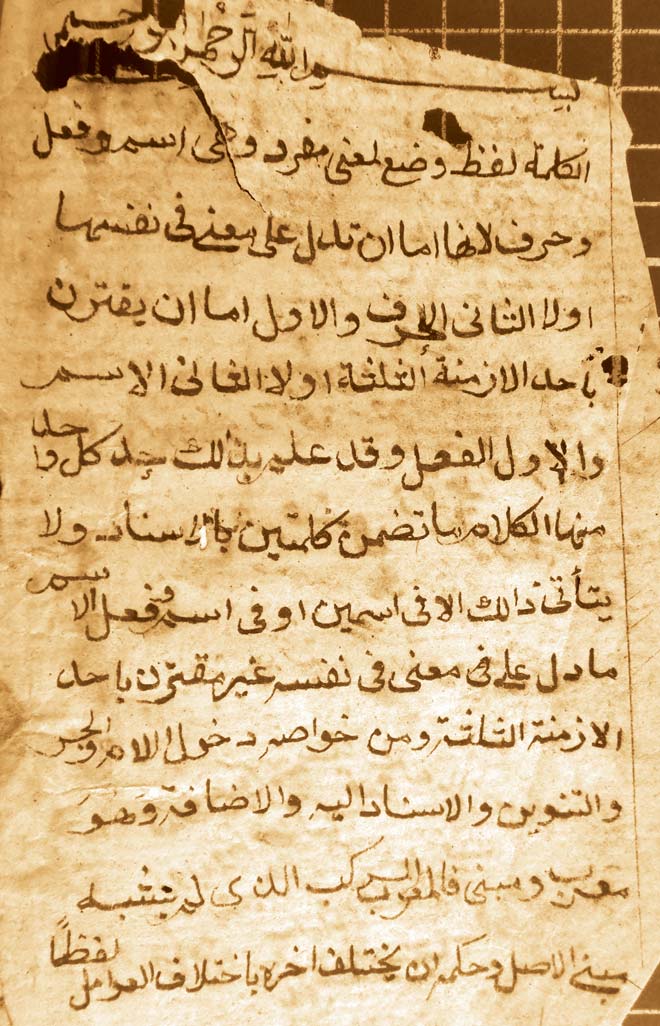 بسم الله الرحمن الرحيم
الكلمة لفظ وضع لمعنى مفرد وهى اسم وفعل
وحرف لانها اما ان تدل على معنى فى نفسها
اولا الثانى الحرف والاول اما ان يقترن
باحد الازمنة الثلثة اولا الثانى الاسم
والاول الفعل وقد علم بذالك حد كل واحد
منها الكلام ما تضمن كلمتين بالاسناد ولا
يتأتى ذالك الا فى اسمين او فى اسم وفعل الاسم
ما دل على فى معنى فى نفسه غير مقترن باحد
الازمنة الثلثة ومن خواصه دخول اللام والجر
والتنوين والاسناد اليه والاضافة وهو
معرب ومبنى فالمعرب المركب الذى لم يشبه
مبنى الاصل وحكمه ان يختلف اخره باختلاف العوامل لفظاً